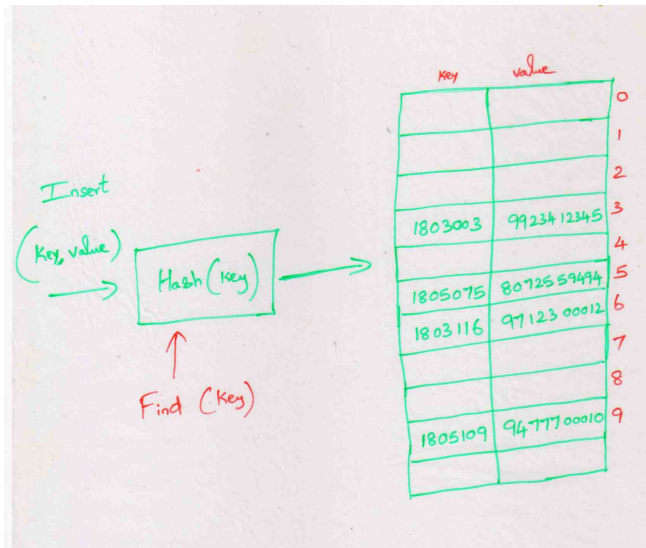 Insert
(Key, value)
Hash (Key)
Find (Key)
Key value
0
1
2
1803003 9923412345 3
4
1805075 8072559494 5
1803116 9712300012 6
7
8
1805109 9477700010 9